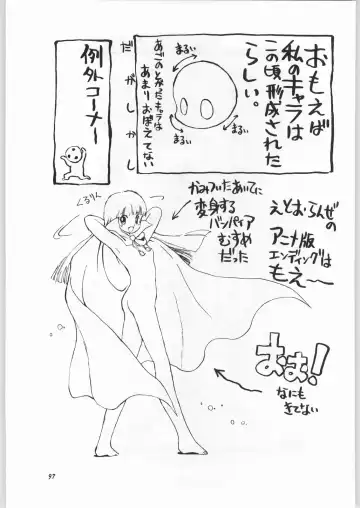 おもえば
私のキャラは
この頃形成された
らしい。
まるい
まるい
まるい
だがしかし
あごのとがったキャラは
あまりおぼえてない
例外コーナー
えとおらんぜの
アニメ版
エンディングは
もえ〜
かみついたあいてに
変身する
バンパイア
むすめ
だった
くるりん
おお!
なにも
きてない
97